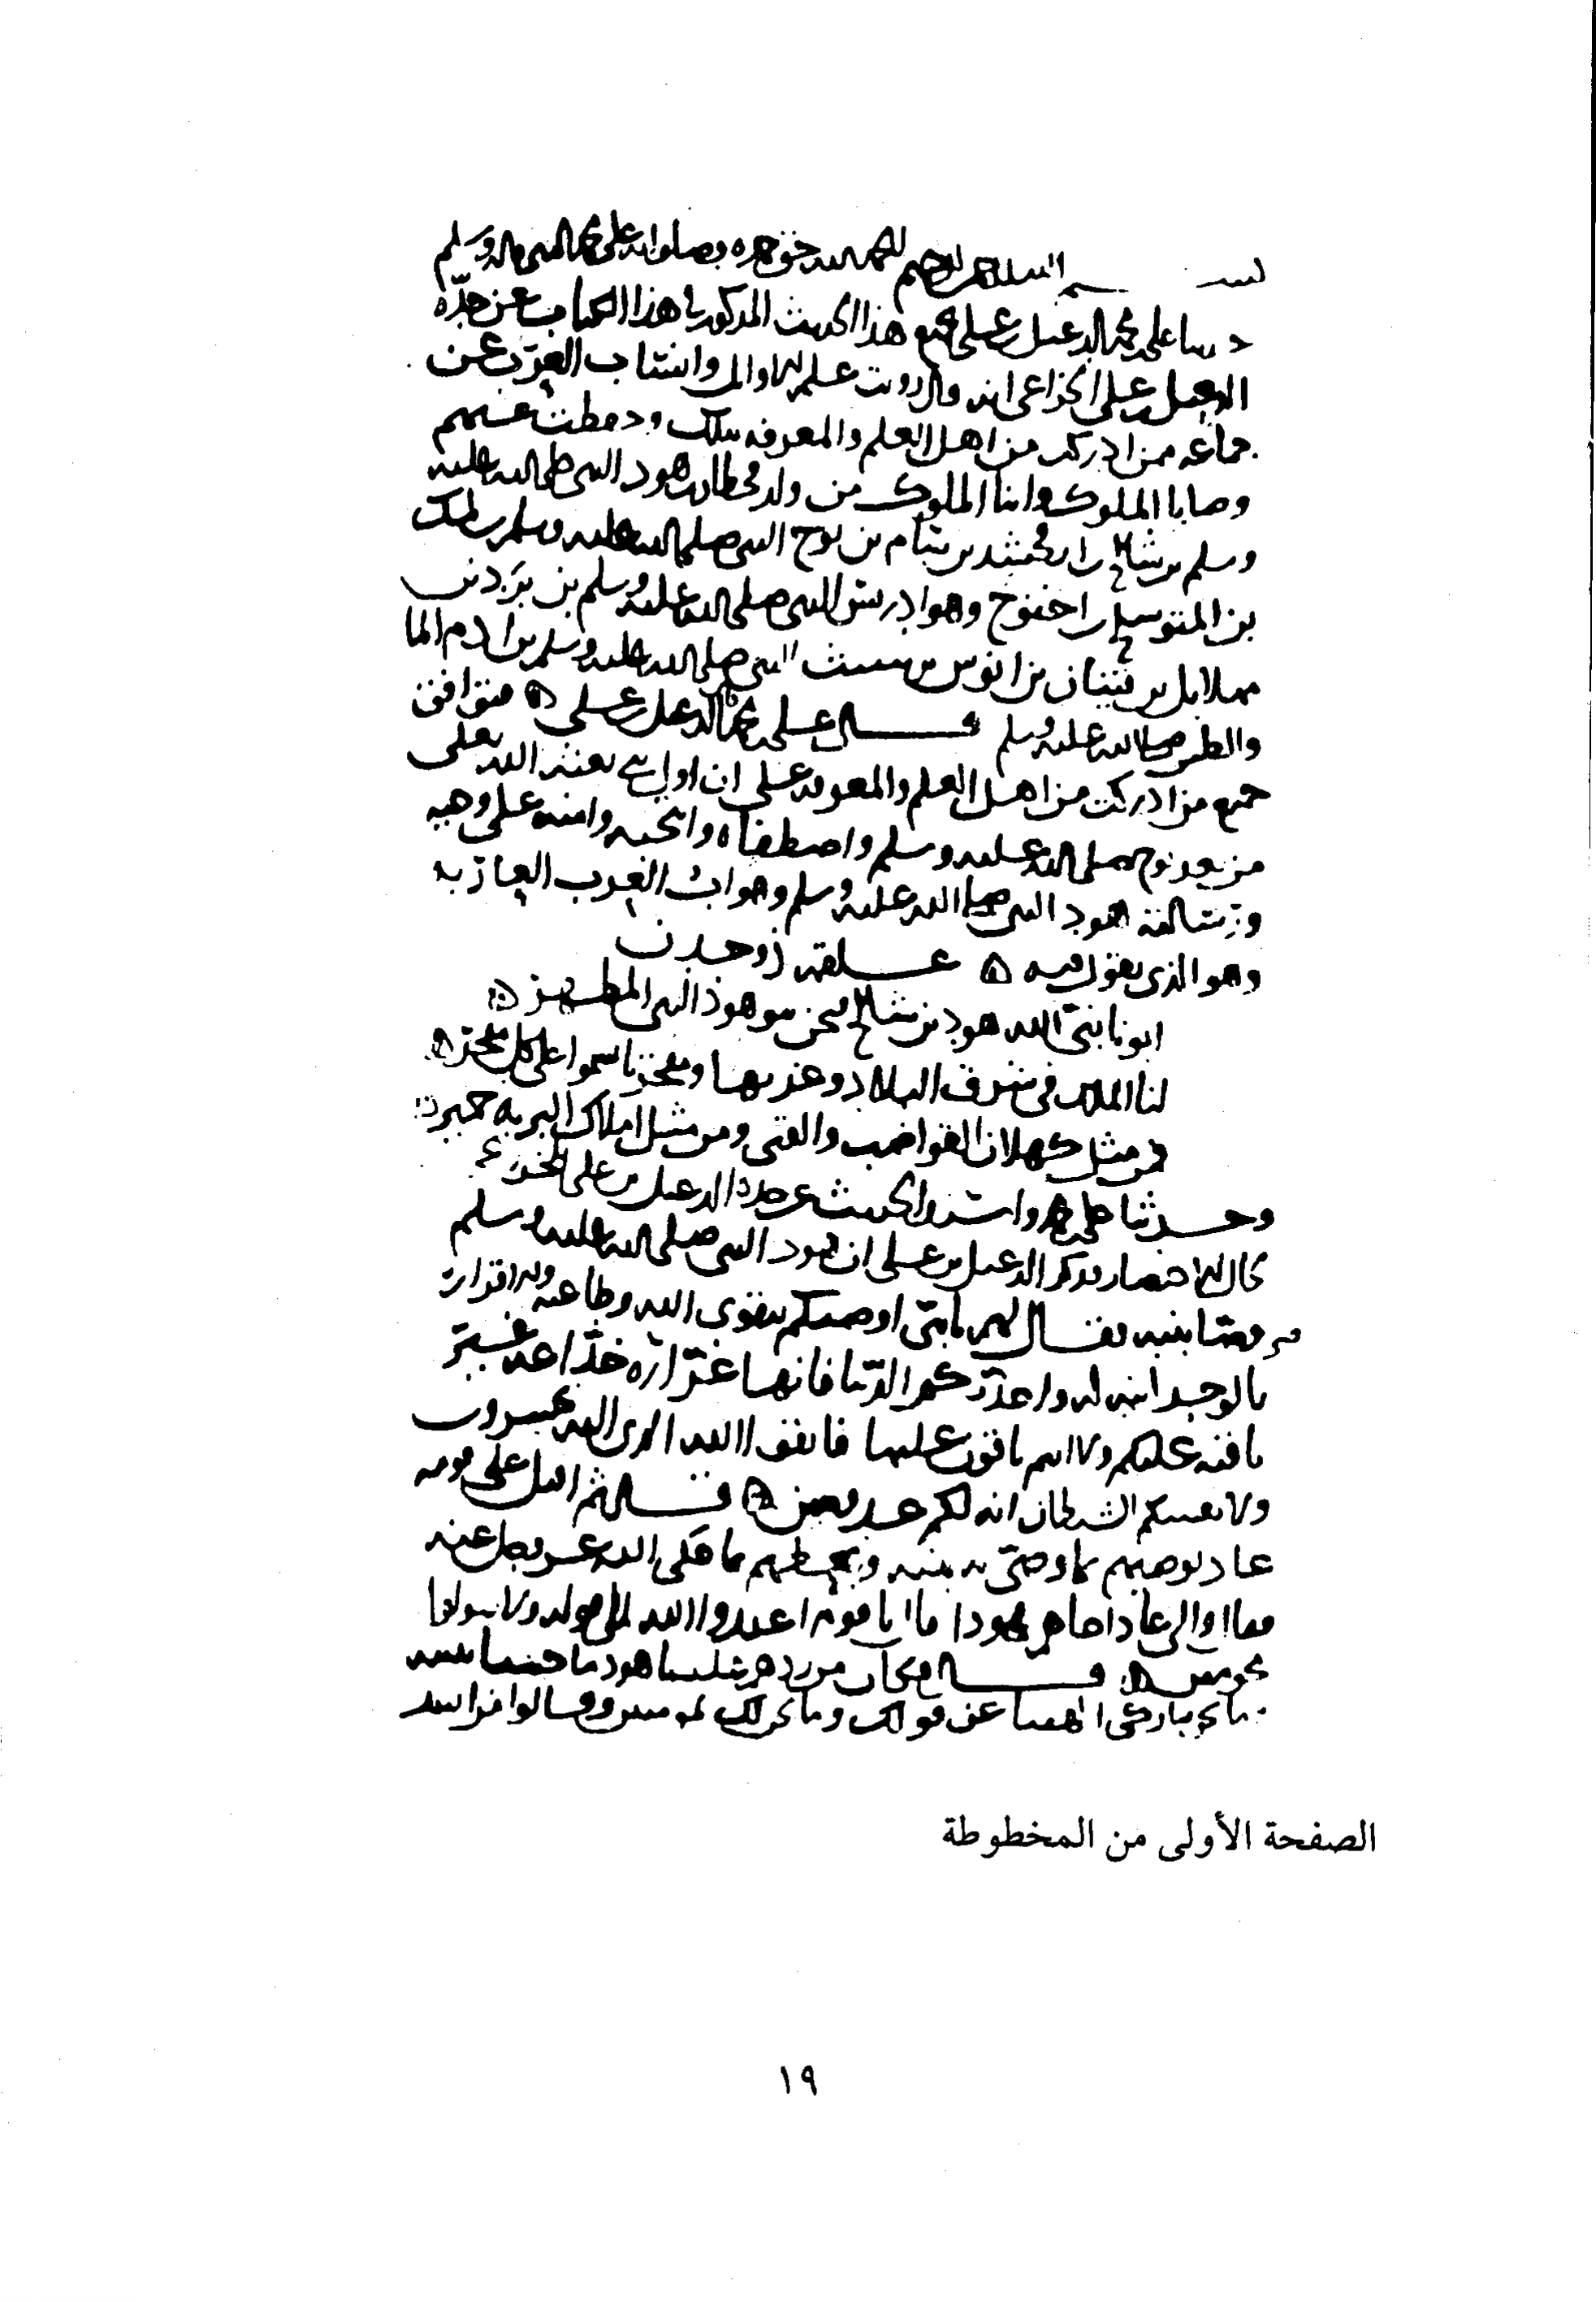 بسم الله الرحمن الرحيم الحمد لله حق حمده وصلواته على محمد النبي واله وسلم
حدثنا علي بن محمد بن الدعبل بن علي جميع هذا الحديث المذكور في هذا الكتاب عن جده
الدعبل بن علي الخزاعي انه قال رويت علم الاوائل وانساب العرب عن
جماعه ممن ادركت من اهل العلم والمعرفه بذلك وحفظت عنهم
وصايا الملوك وابنا الملوك من ولد قحطان بن هود النبي صلى الله عليه
وسلم بن شالخ بن ارفخشد بن سام بن نوح النبي صلى الله عليه وسلم بن لمك
بن المتوشلخ بن اخنوخ وهو ادريس النبي صلى الله عليه وسلم بن يرد بن
مهلايل بن قينان بن انوش بن شيث النبي صلى الله عليه وسلم بن ادم الما
والطين صلى الله عليه وسلم قال علي بن محمد بن الدعبل بن علي متوافق
جميع من ادركت من اهل العلم والمعرفه على ان اول نبي بعثه الله تعلى
من بعد نوح صلى الله عليه وسلم واصطفاه وانتخبه وامنه على وحيه
ورسالته هود النبي صلى الله عليه وسلم وهو ابو العرب العاربه
وهو الذي يقول فيه علقمه ذو جدن
ابونا نبي الله هود بن شالخ فنحن بنو هود النبي المطهر
لنا الملك في شرق البلاد وغربها ومفخرنا يسموا على كل مفخر
فمن مثل كهلان القواضب والفتى ومن مثل املاك البريه حمير
وحدثنا علي بن محمد واسند الحديث عن جده الدعبل بن علي الخزاعي
قال الاختصار يذكر الدعبل بن علي ان هود النبي صلى الله عليه وسلم
وصا بنيه فقال لهم يا بني اوصيكم بتقوى الله وطاعته والاقرار
بالوحدانيه له واحذركم الدنيا فانها غراره خداعه غير
باقيه عليكم ولا انتم باقون عليها فاتقوا الله الذي اليه تحشرون
ولا يفتننكم الشيطان انه لكم عدو مبين قال ثم اقبل على قومه
عاد يوصيهم بما وصى به بنيه
فقال والى عاد اخاهم هودا قال يا قوم اعبدوا الله الى قوله ولا تتولوا
مجرمين قال فكان من ردهم عليه يا هود ما جئتنا ببينه
وما نحن بتاركي الهتنا عن قولك وما نحن لك بمومنين وقالوا
الصفحة الأولى من المخطوطة
١٩